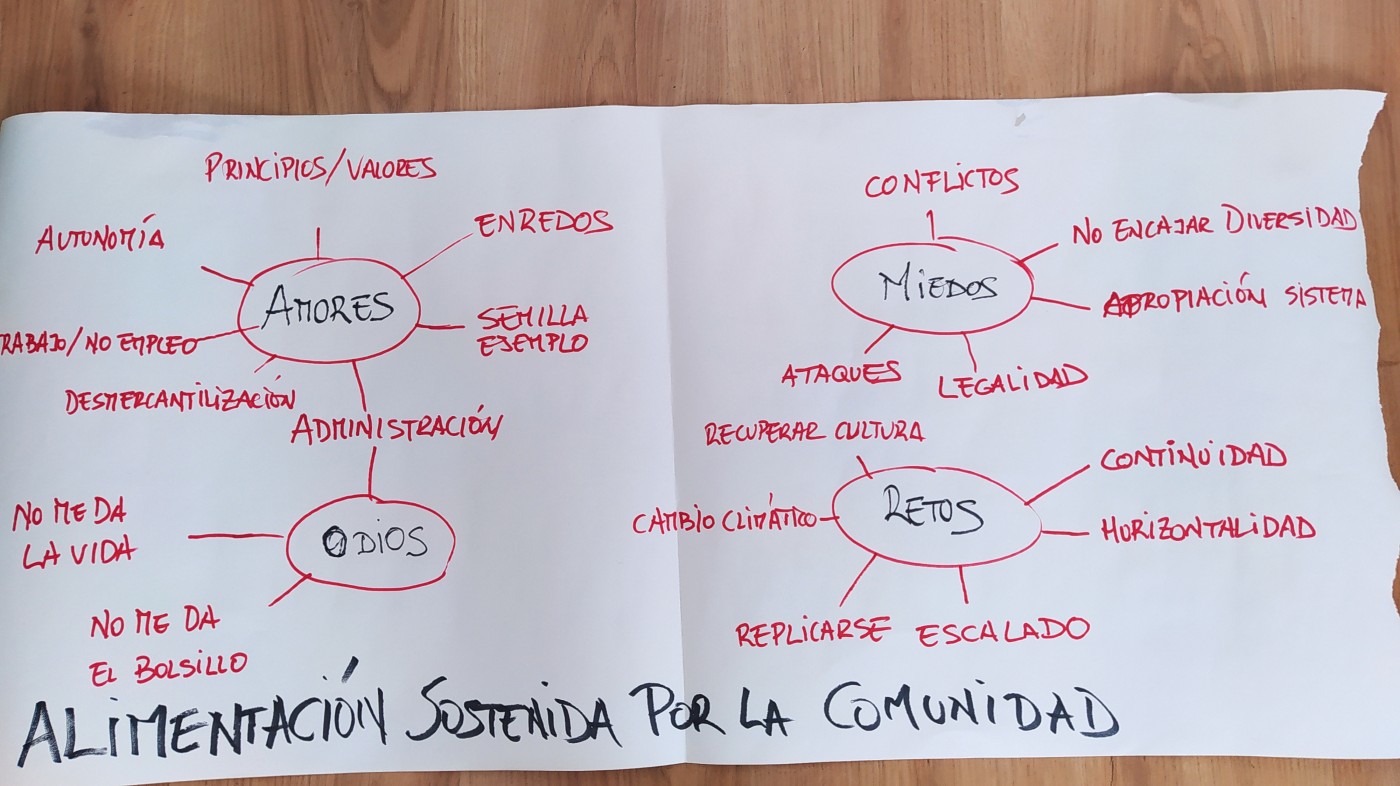 PRINCIPIOS/VALORES
AUTONOMÍA
ENREDOS
AMORES
SEMILLA
EJEMPLO
RABAJO/NO EMPLEO
DESMERCANTILIZACIÓN
ADMINISTRACIÓN
NO ME DA
LA VIDA
ODIOS
NO ME DA
EL BOLSILLO
CONFLICTOS
NO ENCAJAR DIVERSIDAD
MIEDOS
APROPIACIÓN SISTEMA
ATAQUES
LEGALIDAD
RECUPERAR CULTURA
CONTINUIDAD
RETOS
CAMBIO CLIMÁTICO
HORIZONTALIDAD
REPLICARSE
ESCALADO
ALIMENTACIÓN SOSTENIDA POR LA COMUNIDAD